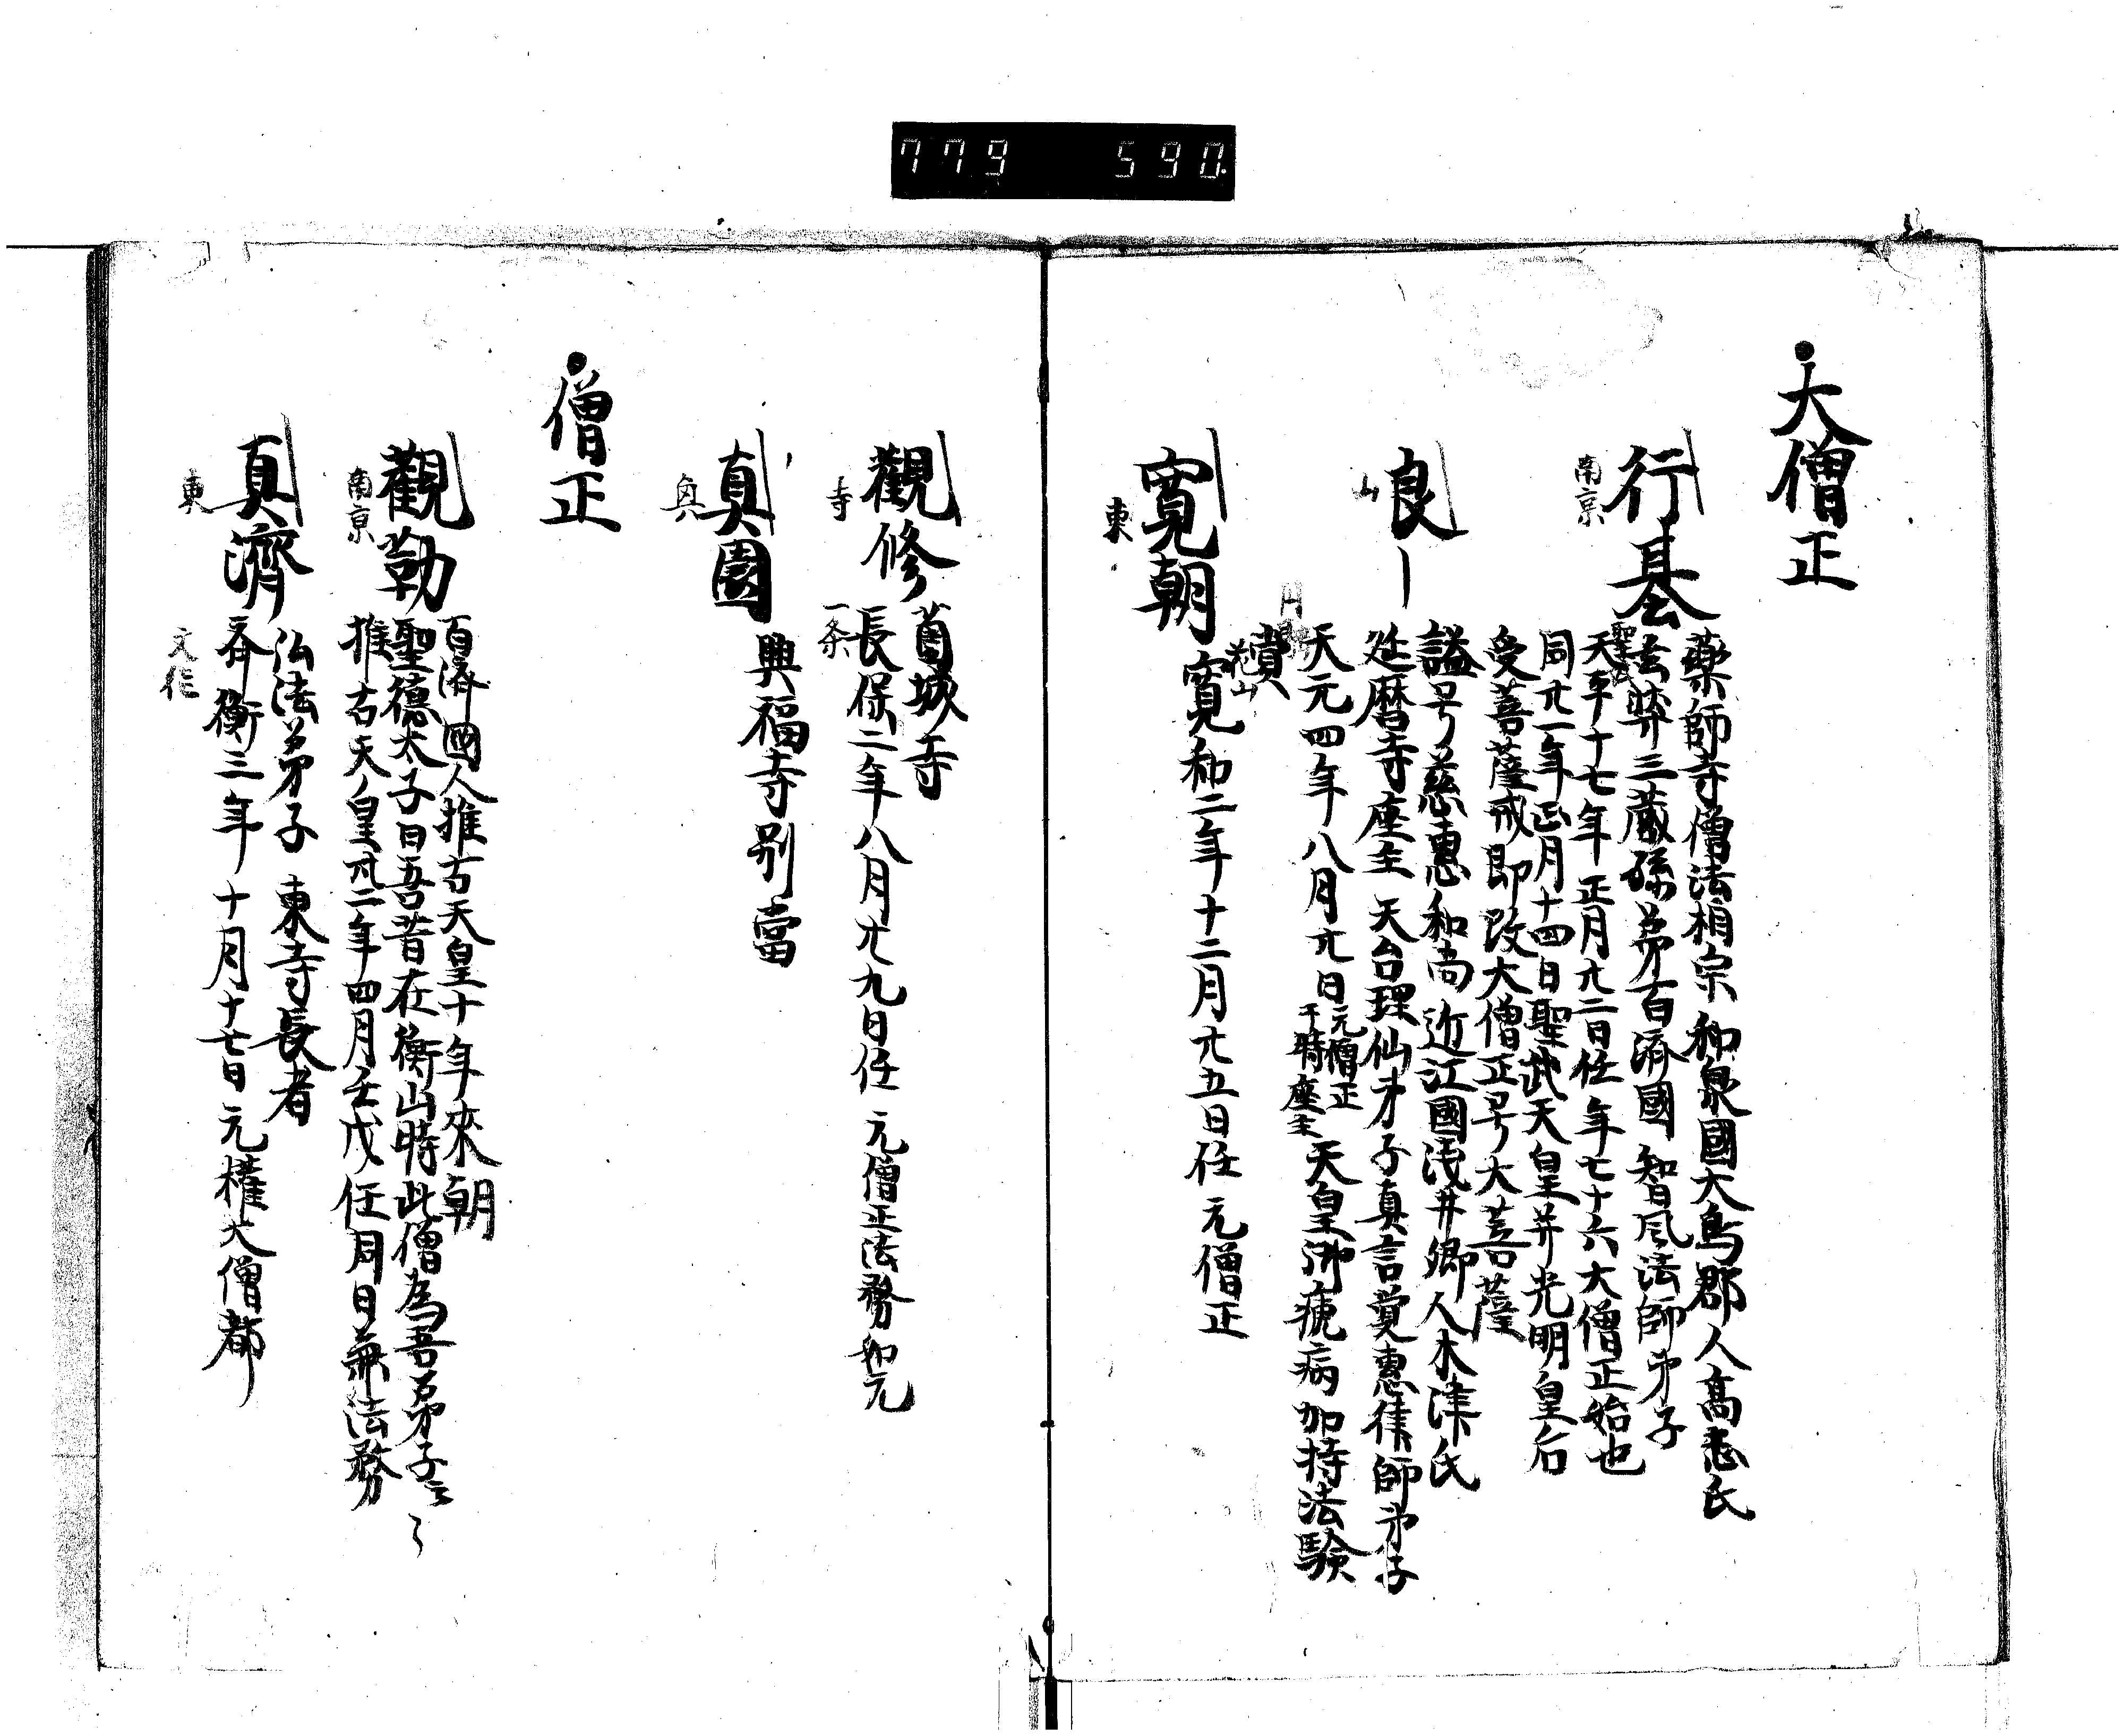 779 590
大僧正
行基
南京
薬師寺僧法相宗 和泉國大鳥郡人高志氏
玄弉三蔵孫弟百済國 智凤法師弟子
聖武
天平十七年正月廿二日任年七十六大僧正始也
同廿一年正月十四日聖武天皇并光明皇后
受菩薩戒即改大僧正号大菩薩
良〡
山
謚号慈惠和尚 近江國浅井郷人木津氏
延暦寺座主 天台理仙弟子真言覚惠律師弟子
天元四年八月廿日 元僧正 于時座主 天皇御痾病加持法験
寛朝
東
寛和二年十二月廿五日任 元僧正
觀修
寺
薗城寺
長保二年八月廿九日任 元僧正法務如元
一条
真園
興
興福寺別當
僧正
觀勒
南京
百済國人推古天皇十年來朝
聖德太子曰吾昔在衡山時此僧為吾弟子云〻
推古天皇卅二年四月壬戌任同日兼法務
真濟
東
弘法弟子 東寺長者
斉衡三年十月十七日 元權大僧都